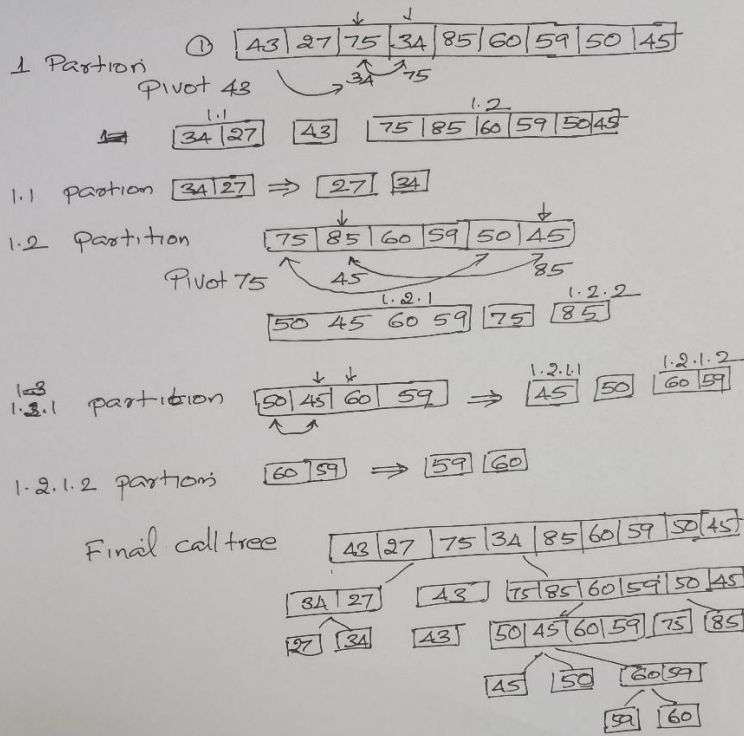 ① 43 27 75 34 85 60 59 50 45
1 Partion
Pivot 43
34 75
1.1 1.2
34 27 43 75 85 60 59 50 45
1.1 partion 34 27 ⇒ 27 34
1.2 Partition 75 85 60 59 50 45
Pivot 75 45 85
1.2.1 1.2.2
50 45 60 59 75 85
1.2.1.1 1.2.1.2
1.2.1 partition 50 45 60 59 ⇒ 45 50 60 59
1.2.1.2 partion 60 59 ⇒ 59 60
Final call tree 43 27 75 34 85 60 59 50 45
34 27 43 75 85 60 59 50 45
27 34 43 50 45 60 59 75 85
45 50 60 59
59 60